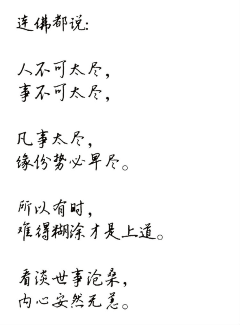 连佛都说:
人不可太尽，
事不可太尽，
凡事太尽，
缘份势必早尽。
所以有时，
难得糊涂才是上道。
看淡世事沧桑，
内心安然无恙。